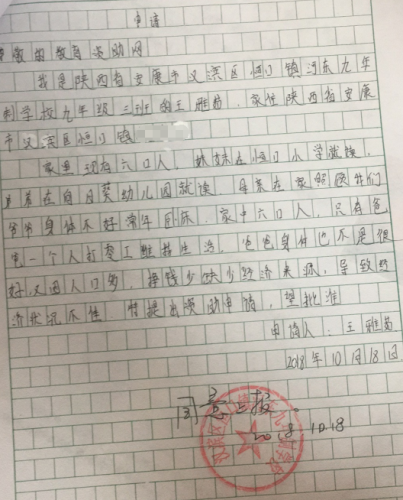 申请
尊敬的教育资助网
我是陕西省安康市汉滨区恒口镇河东九年
制学校九年级三班的王雅茹,家住陕西省安康
市汉滨区恒口镇
家里现有六口人,妹妹在恒口小学就读,
弟弟在向日葵幼儿园就读,母亲在家照顾我们
爷爷身体不好常年卧床,家中六口人,只有爸
爸一个人打零工维持生活,爸爸身体也不是很
好,又因人口多,挣钱少缺少经济来源,导致经
济状况不佳,特提出资助申请,望批准
申请人:王雅茹
2018年10月18日
同意上报。
2018.10.18